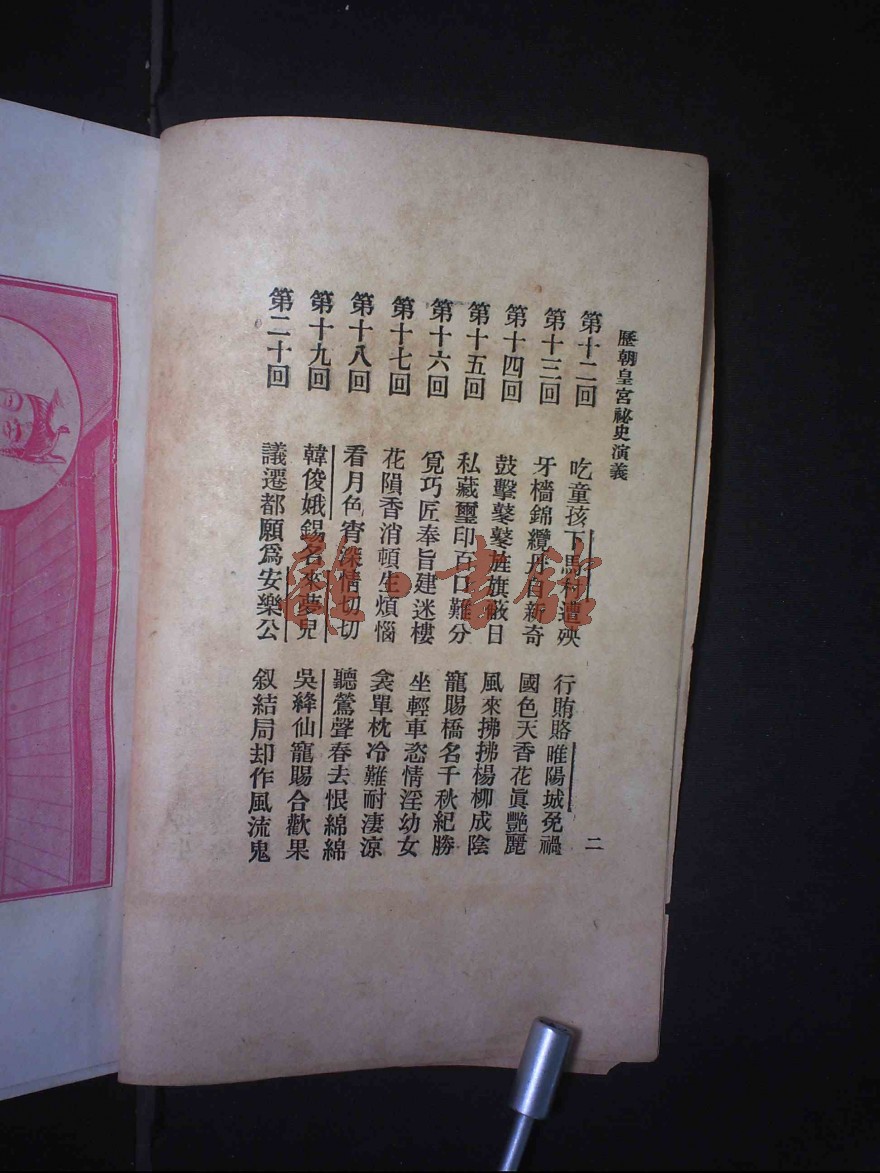 歷朝皇宮祕史演義
二
第十二回 吃童孩下馬村遭殃 行賄賂睢陽城免禍
第十三回 牙檣錦纜丹自新奇 國色天香花眞艷麗
第十四回 鼓擊鼕鼕旌旗蔽日 風來拂拂楊柳成陰
第十五回 私藏璽印百口難分 寵賜橋名千秋紀勝
第十六回 覓巧匠奉旨建迷樓 坐輕車恣情淫幼女
第十七回 花隕香消頓生煩惱 衾單枕冷難耐淒涼
第十八回 看月色宵深情切切 聽鶯聲春去恨綿綿
第十九回 韓俊娥錫名來夢兒 吳絳仙寵賜合歡果
第二十回 議遷都願爲安樂公 叙結局却作風流鬼